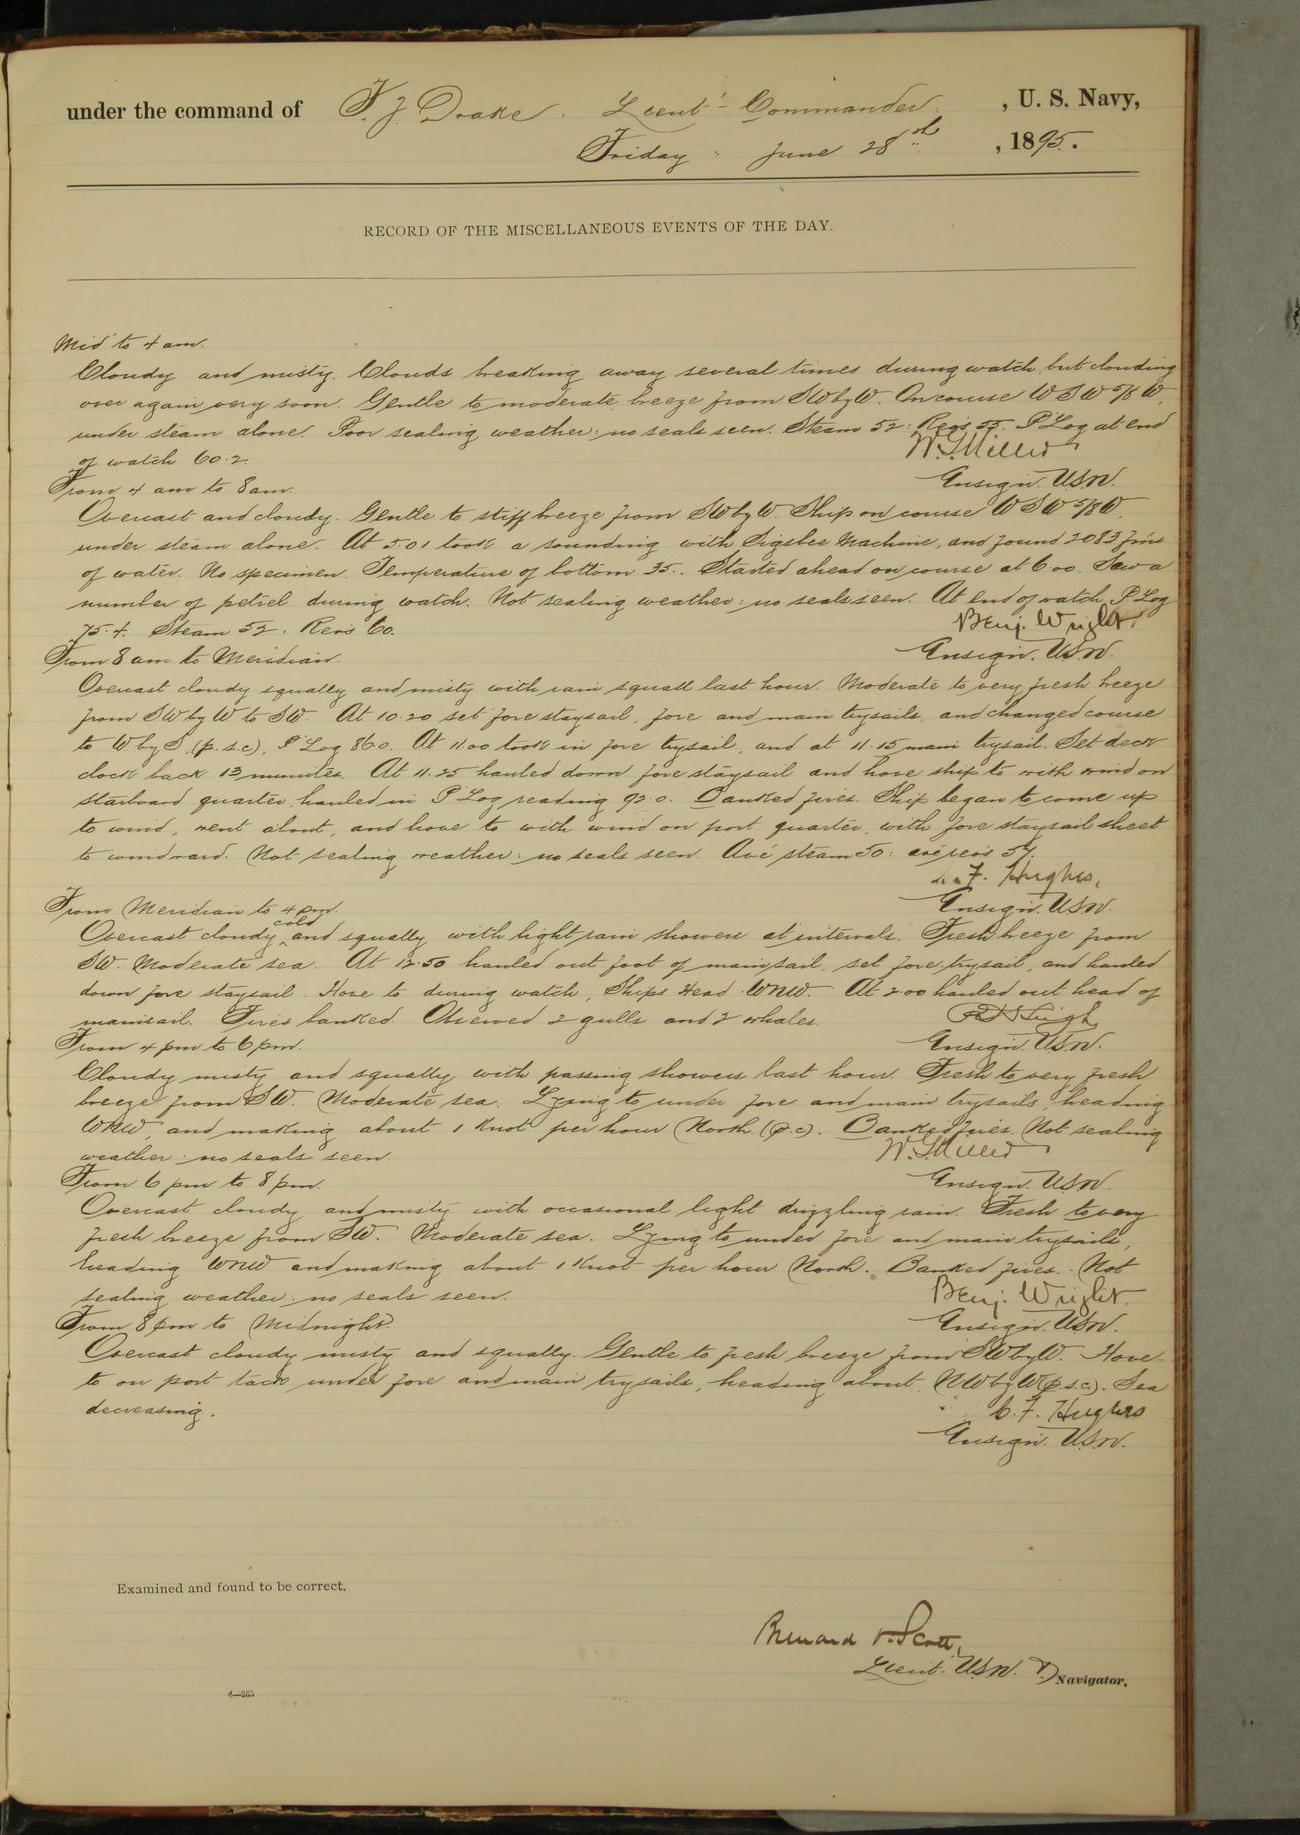 under the command of F. J. Drake. Lieut - Commander, U. S. Navy,
Friday June 28th, 1895.
RECORD OF THE MISCELLANEOUS EVENTS OF THE DAY.
Mid to 4 am.
Cloudy and misty. Clouds breaking away several times during watch, but clouding
over again very soon. Gentle to moderate breeze from SWbyW. On course WSW 5/8 W,
under steam alone. Poor sealing weather: no seals seen. Steam 52: Revs 55. P Log at end
of watch 60.2.
W. G. Miller
From 4 am to 8 am.
Ensign. U.S.N.
Overcast and cloudy. Gentle to stiff breeze from SWbyW. Ship on course WSW 5/8 W,
under steam alone. At 5.01 took a sounding with Sigsbee Machine, and found 2083 fms
of water. No specimen. Temperature of bottom 35. Started ahead on course at 6 00. Saw a
number of petrel during watch. Not sealing weather: no seals seen. At end of watch P Log
75.4. Steam 52. Revs 60.
Benj. Wright.
From 8 am to Meridian.
Ensign. U.S.N.
Overcast cloudy squally and misty with rain squall last hour. Moderate to very fresh breeze
from SWbyW to SW. At 10.20 set fore staysail, fore and main trysails, and changed course
to WbyS, (p.s.c), P Log 86.0. At 11.00 took in fore trysail, and at 11.15 main trysail. Set deck
clock back 13 minutes. At 11.25 hauled down fore staysail and hove ship to with wind on
starboard quarter, hauled in P Log reading 92.0. Banked fires. Ship began to come up
to wind, went about, and hove to with wind on port quarter, with fore staysail sheet
to windward. Not sealing weather: no seals seen. Ave steam 50: ave revs 57.
F. Hughes,
From Meridian to 4 pm.
Ensign. U.S.N.
Overcast cloudy cold and squally with light rain showers at intervals. Fresh breeze from
SW. Moderate sea. At 12.50 hauled out foot of mainsail, set fore trysail, and hauled
down fore staysail. Hove to during watch, Ships Head WNW. At 2 00 hauled out head of
mainsail. Fires banked. Observed 2 gulls and 2 whales.
From 4 pm to 6 pm.
Ensign. U.S.N.
Cloudy misty and squally with passing showers last hour. Fresh to very fresh
breeze from SW. Moderate sea. Lying to under fore and main trysails, heading
WNW, and making about 1 Knot per hour North (p.c). Banked fires. Not sealing
weather: no seals seen.
W. G. Miller
From 6 pm to 8 pm.
Ensign. U.S.N.
Overcast cloudy and misty with occasional light drizzling rain. Fresh to very
fresh breeze from SW. Moderate sea. Lying to under fore and main trysails,
heading WNW and making about 1 Knot per hour North. Banked fires. Not
sealing weather: no seals seen.
Benj. Wright.
From 8 pm to Midnight.
Ensign. U.S.N.
Overcast cloudy misty and squally. Gentle to fresh breeze from SWbyW. Hove-
to on port tack under fore and main trysails, heading about NWbyW (p.s.c). Sea
decreasing.
C. F. Hughes
Ensign. U.S.N.
Examined and found to be correct.
Bernard O. Scott,
Lieut. U.S.N. Navigator.
4—265